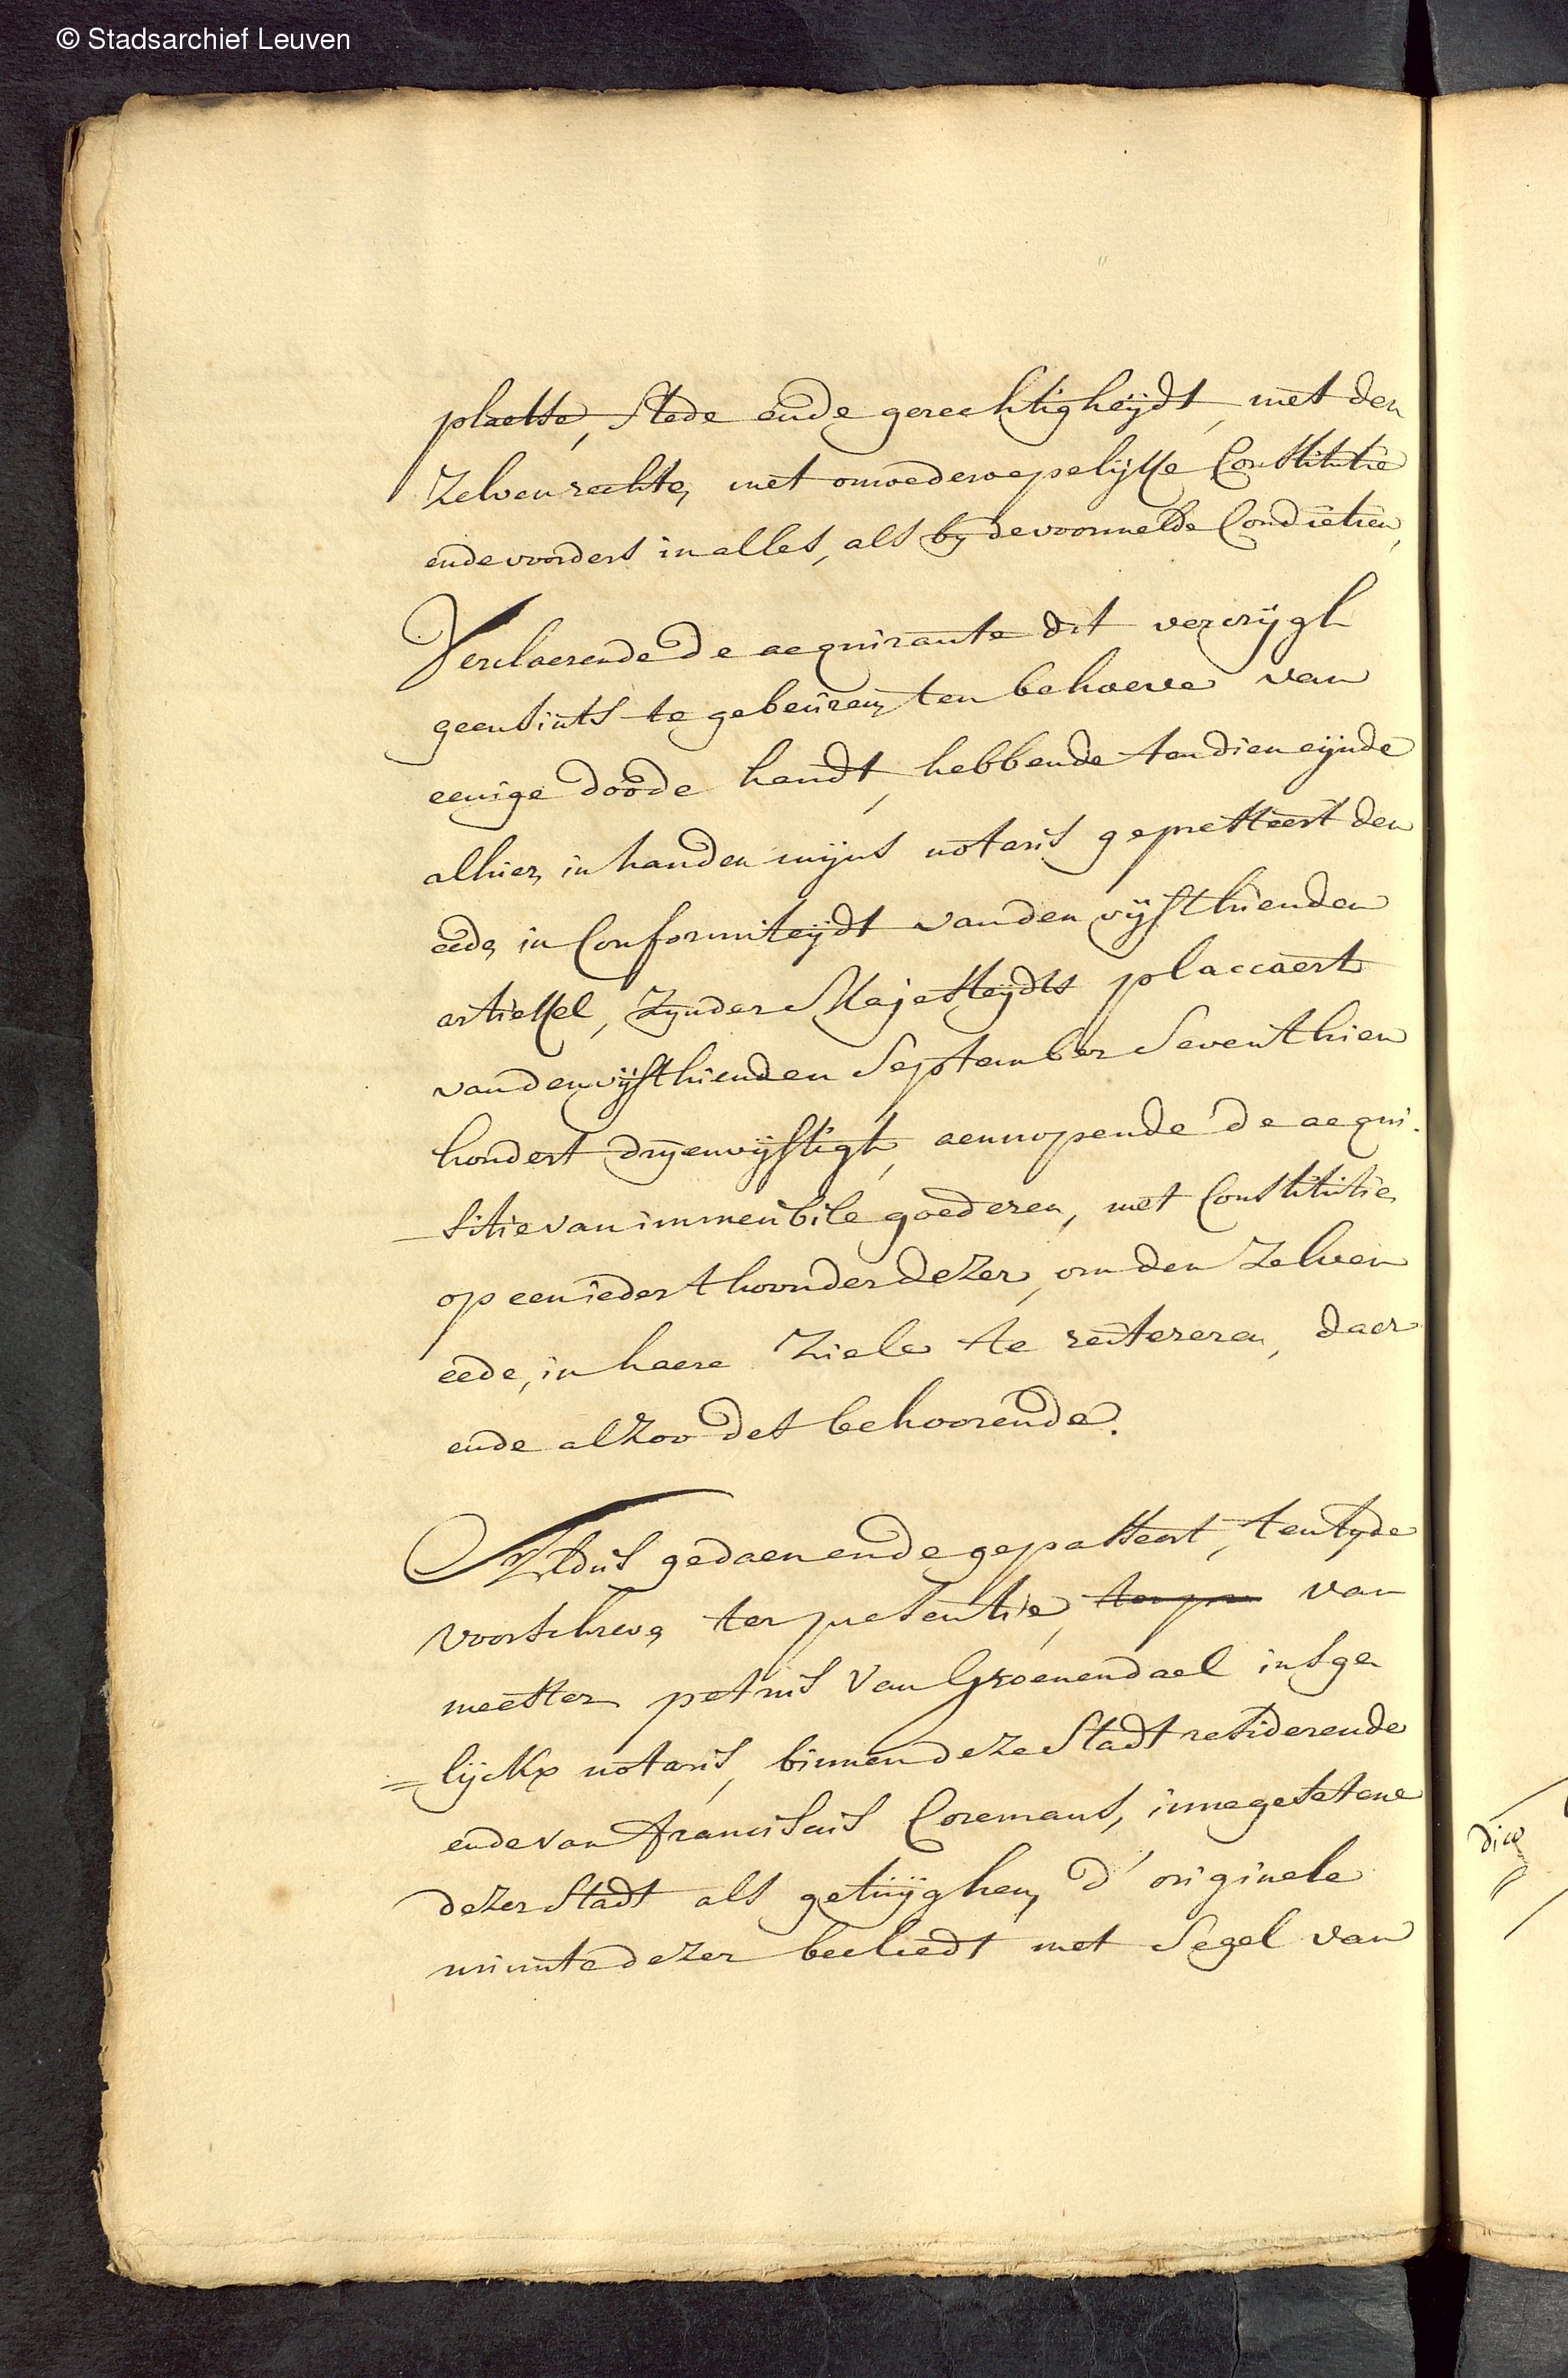 © Stadsarchief Leuven
plaetse, stede ende gerechtigheijdt, met den
zelven rechte, met onwederoepelijke Constitutie
ende voorders in alles, als by de voormelde Conditien,
Verclaerende de acquirante dit vercrijgh
geensints te gebeuren, ten behoeve van
eenige doode handt, hebbende ten dien eijnde
alhier, in handen mijns notaris gepresteert den
eede, in Conformiteijdt van den vijfthienden
artickel, zynder Majesteijdts placcaert
van den vijfthienden September Seventhien
hondert drijenvijftigh, aennopende de acqui-
sitie van immeubile goederen, met Constitutie
op een ieder thoonder dezer, om den zelven
eede, in haere ziele te reitereren, daer
ende alzoo des behoorende.
Aldus gedaen ende gepasseert, ten tyde
voorschreve, ter presentie, ter pre van
meester petrus Van Groenendael insge
=lijckx notaris, binnen deze Stadt residerende
ende van franciscus Coremans, innegesetene
dezer Stadt als getuijghen, d' originele
minute dezer becleedt met Segel van
dico